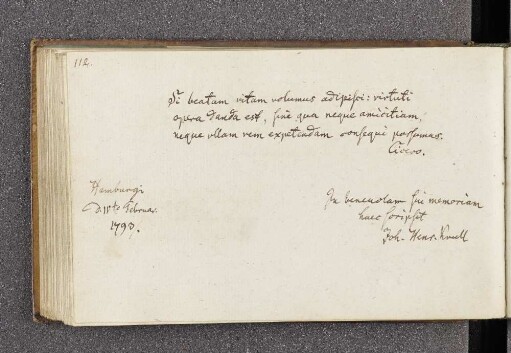 112.
Si beatam vitam volumus adipisci: virtuti
opera danda est, sine qua neque amicitiam,
neque ullam rem expetendam consequi possumus.
Cicero.
Hamburgi
1793.
In benevolam sui memoriam
haec scripsit
Joh. Henr.